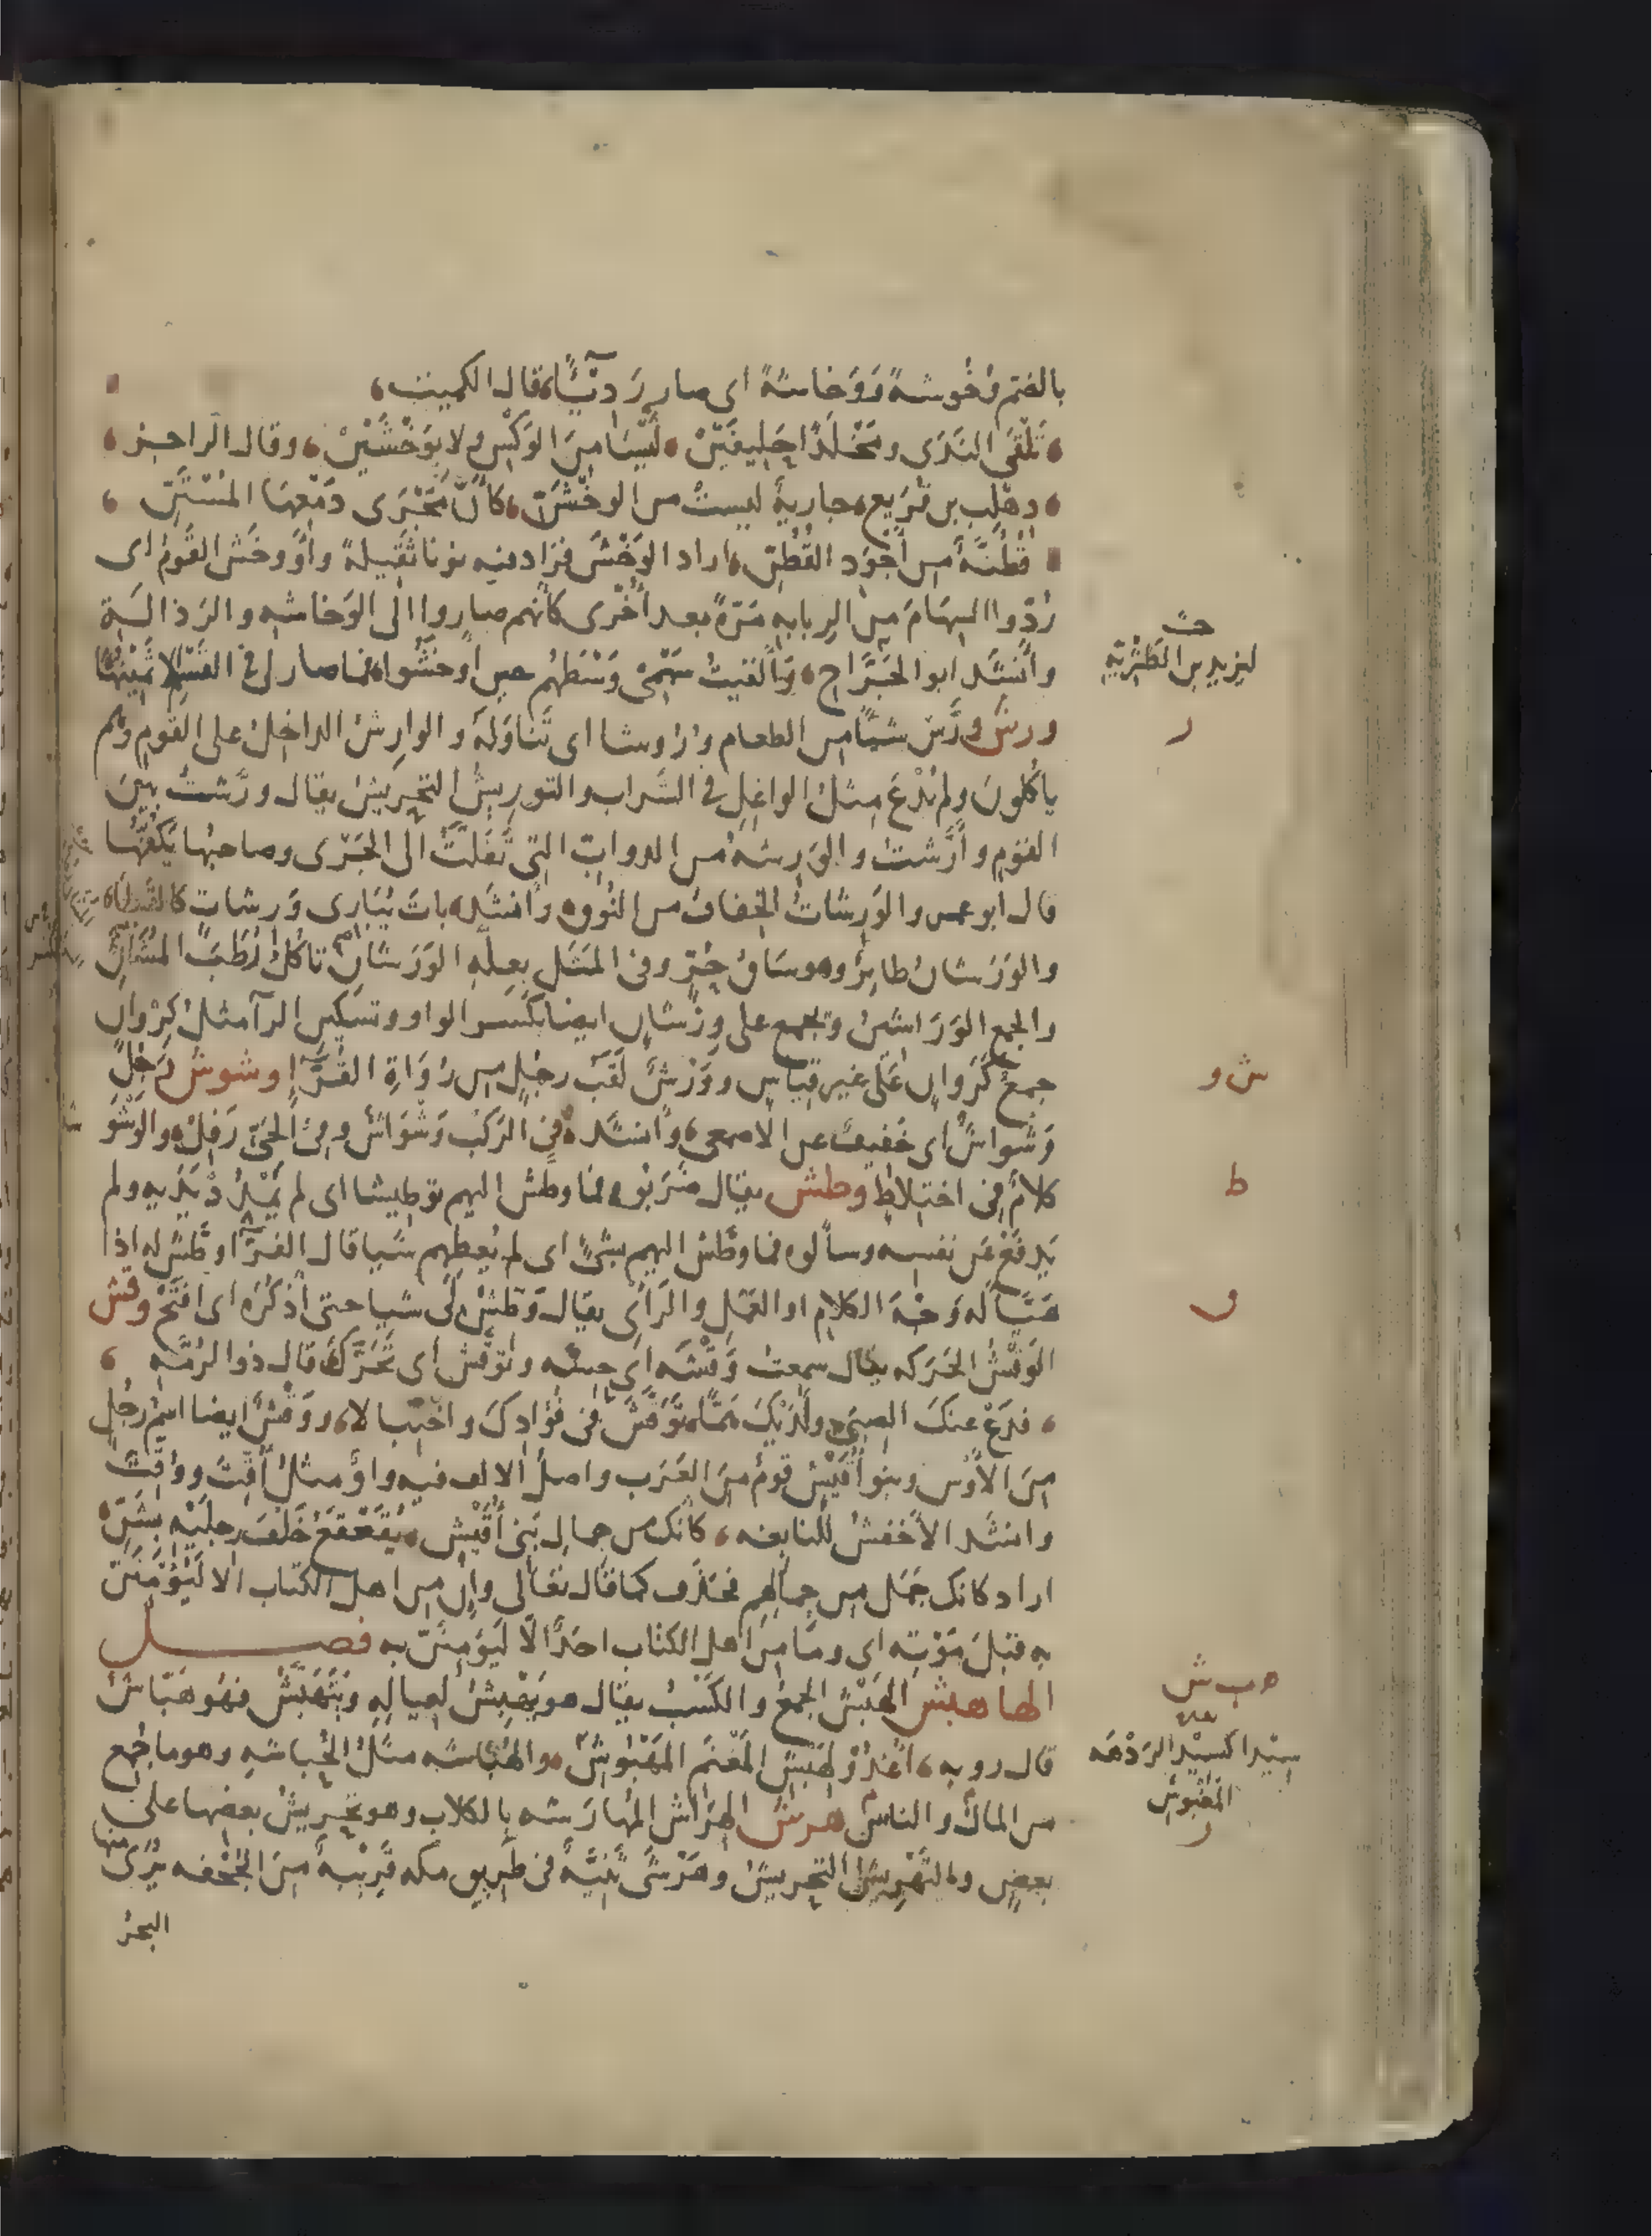 بالضم وُخُوشةً وَوَخاشةً اى صار رَديًّا، قال الكميت،
، تَلْقَى النَدَى ومَخْلَدًا حَلِيفَيْن ، لَيْسَا مِنَ الوَكْسِ ولا بوَخْشَيْنْ ، وقال الراجز ،
، دهلب بن قُرَيع ، جاريةٌ ليست من الوخْشَنّ ، كأنّ مَجْرَى دَمْعِها المُسْتَنّ ،
قُطْنَةٌ من أجْوَد القُطْنّ ، اراد الوَخْشَ فزاد فيه نونا ثَقيلة واَوْخَش القومُ اى
رَدّوا السِهَامَ فى الرِبابه مَرّةً بعد اُخْرى كانهم صاروا الى الوَخاشه والرَذالَة
وأنشد ابو الجَرَّاح ، وَألقيتُ سَهْمى وَسْطَهُم حين اَوخَشُوا ، فما صار لى فى القَسْمِ الا ثَمينُها
ورش وَرَش شيئًا من الطعام وُرُوشا اى تَناوَلَهُ والوارِشُ الداخِلُ على القَوم وهم
ياكُلونَ ولم يُدْعَ مِثلُ الواغِلِ فى الشَراب والتوريشُ التحريش يقال ورَّشتُ بين
القوم وأرَّشتُ والوَرِشَهُ من الدوابّ التى تَفَلَّتُ الى الجَرْى وصاحبُها يَكُفُّها
قال ابو عمرو والوَرِشَاتُ الخِفافُ من النُوقِ وأنشد ، باتَ يُبَارى وَرِشات كالقَطا ،
والوَرَشان طائِرٌ وهو سَاقُ حُرٍّ وفى المَثَل بعِلّةِ الوَرَشَانِ تاكُلُ رُطَبَ المُشَانِ
والجمع الوَرَاشينُ وتجمع على وِرْشَانٍ ايضا بكسر الواو وتسكين الرآ مثل كِرْوانٍ
جمع كَرَوانٍ على غير قِيَاسٍ ووَرْشٌ لَقَبُ رجُلٍ من رُوَاةِ القُرّآءِ وشوش رَجُلٌ
وَشْواشٌ اى خَفيفٌ عن الاصمعى ، وانشد ، فى الرَكْب وَشْوَاشٌ وفى الحَىّ رَفِل ، والوَشْوَ
كلامٌ فى اختِلاطٍ وطش يقال ضَرَبُوه فما وطّش اليهم توطيشا اى لم يَمْدُدْ بيَدِه ولم
يَدفَعْ عَن نفسِه وسألوه فما وطّش اليهم بشىءٍ اى لم يُعطِهم شيا قال الفرّآ وطّش له اذا
هَيَّأ له وَجْهَ الكلامِ او العَمَلِ والرَأىِ يقال وَطِّشْ لى شيا حتى أذكُرَه اى افتَحْ وقش
الوَقْشُ الحَرَكه يقال سمعتُ وَقْشَه اى حِسّه وتوقّش اى تَحَرَّكَ قال ذو الرُمّه ،
، فدَعْ عنكَ الصِبَى ولَدَيْكَ هَمًّا ، تَوَقَّشَ فى فُؤادِكَ واخْتِبالا ، ووَقْشٌ ايضا اسمُ رجُلٍ
مِنَ الأوْس وبنو اُقَيْش قومٌ مِنَ العَرَب واصلُ الالف فيه واوٌ مثلُ اُقِّتَتْ ووُقِّتَتْ
وانشد الأخفشُ للنابغه ، كانك من جِمالِ بَنى أُقَيْش ، يُقَعْقَعُ خَلْفَ رجلَيْهِ بشَنّ ،
اراد كانك جَمَل من جِمالهِم فحَذَف كما قال تعالى وإن من اهل الكتاب الا لَيُؤمِنَنّ
به قبْلَ مَوْتِه اى وما مِنْ اهل الكتاب احَدٌ الّا لَيُؤمِنَنّ به فصل
الها هبش الهَبْشُ الجمعُ والكَسْبُ يقال هو يَهْبِشُ لِعيالِهِ ويَتَهَبَّشُ فهو هَبّاشٌ
قال روبه ، أغْدُوْ لِهَبْشِ المَغْنَمِ المَهْبُوشِ ، والهُباشه مثلُ الحُباشةِ وهو ما جُمِع
من المالِ والناسِ هرش الهِرَاش المُهارَشه بالكلاب وهو تَحْرِيشُ بعضِها على
بعض والتَهْرِيشُ التحريشُ وهَرْشَى ثَنِيَّةٌ فى طريق مكه قَرِيبةٌ مِنَ الجُحْفه يُرَى منها
البحرُ
ليزيد بن الطَثْرِيّةِ
ر
ش و
ط
ق
ه ب ش
سِيْدًا كسِيْدِ الرَدْهَه
المَغْبُوشِ
ر